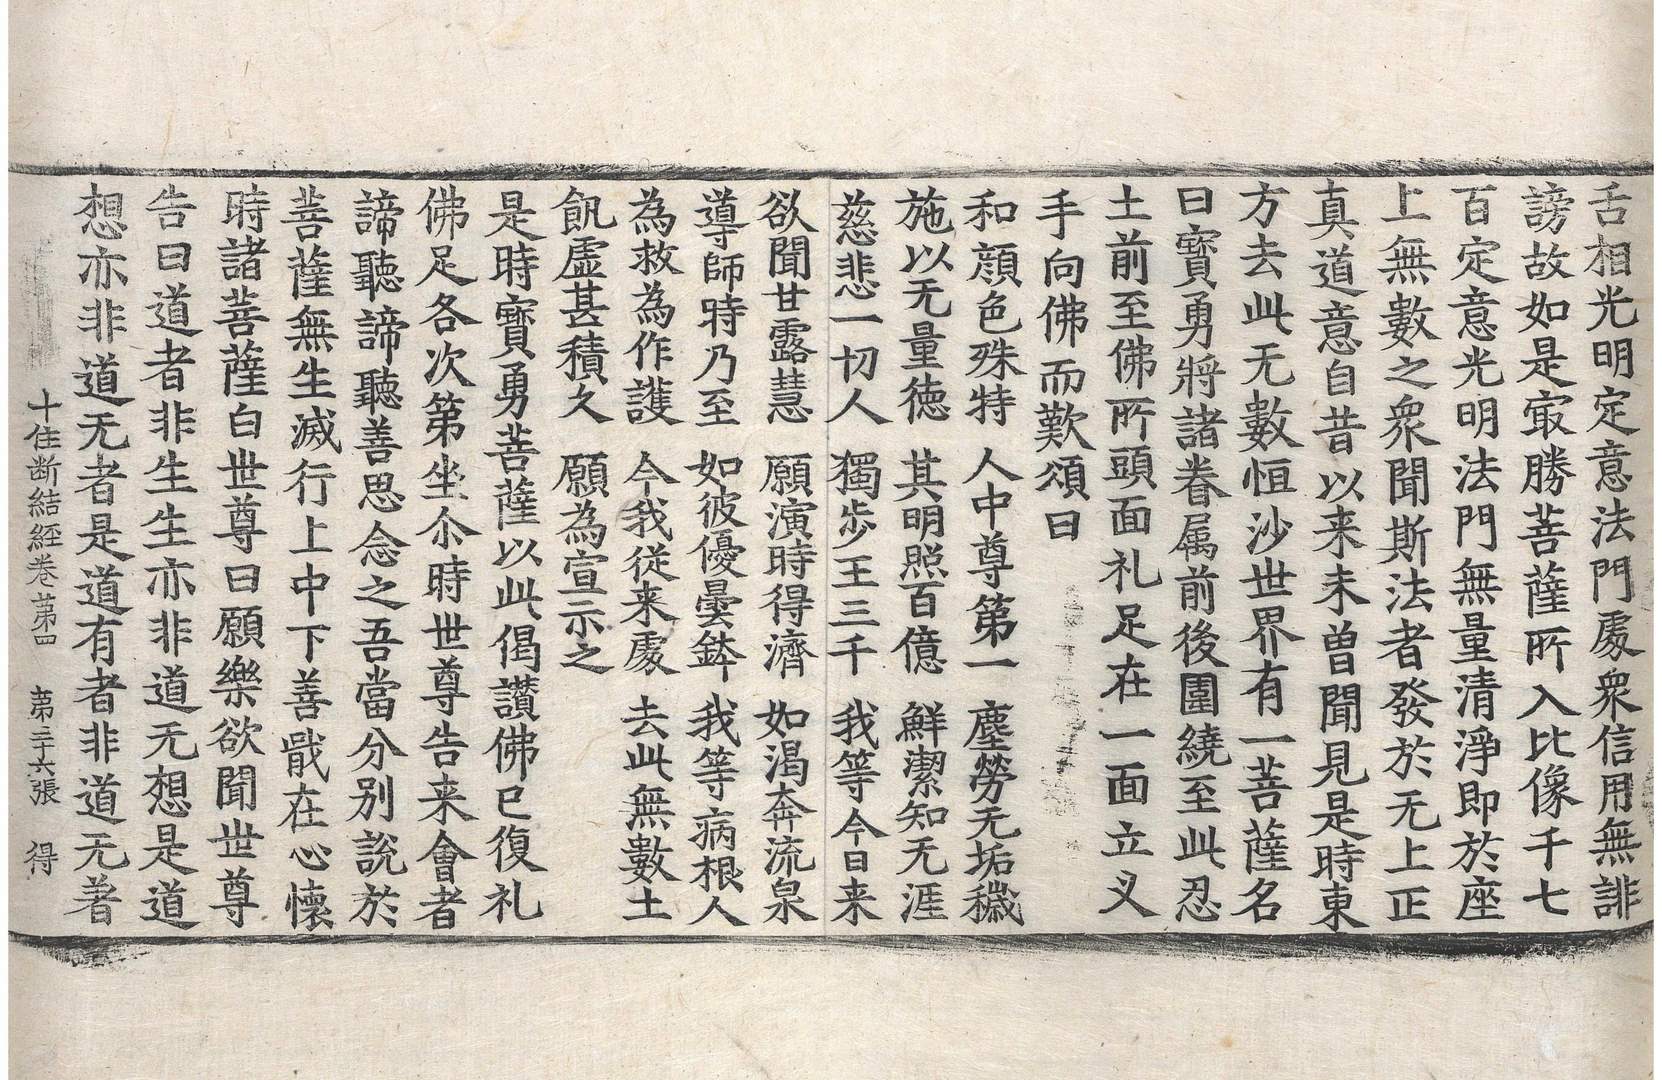 舌相光明定意法門處衆信用無誹
謗故如是㝡勝菩薩所入比像千七
百定意光明法門無量清淨即於座
上無數之衆聞斯法者發於无上正
真道意自昔以来未曽聞見是時東
方去此无數恒沙世界有一菩薩名
曰寳勇將諸眷属前後圍繞至此忍
土前至佛所頭面礼足在一面立叉
手向佛而歎頌曰
和顔色殊特　人中尊第一　塵勞无垢穢
施以无量徳　其明照百億　鮮潔知无涯
慈悲一切人　獨步王三千　我等今日来
欲聞甘露慧　願演時得濟　如渇奔流泉
導師時乃至　如彼優曇鉢　我等病根人
為救為作護　今我従来處　去此無數土
飢虚甚積久　願為宣示之
是時寳勇菩薩以此偈讃佛已復礼
佛足各次第坐尒時世尊告来會者
諦聽諦聽善思念之吾當分別說於
菩薩無生滅行上中下善戢在心懷
時諸菩薩白世尊曰願樂欲聞世尊
告曰道者非生生亦非道无想是道
想亦非道无者是道有者非道无著
十住断結經卷第四　第三十六張　得